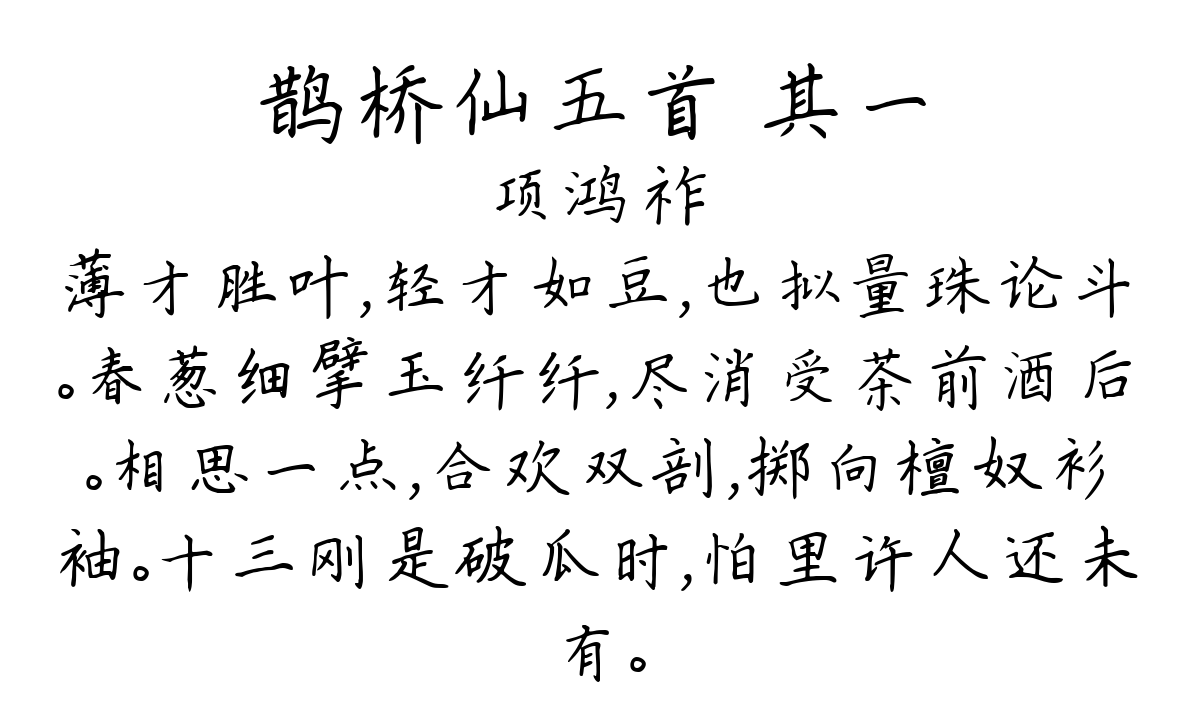 鹊桥仙五首 其一
项鸿祚
薄才胜叶,轻才如豆,也拟量珠论斗
。春葱细擘玉纤纤,尽消受茶前酒后
。相思一点,合欢双剖,掷向檀奴衫
袖。十三刚是破瓜时,怕里许人还未
有。